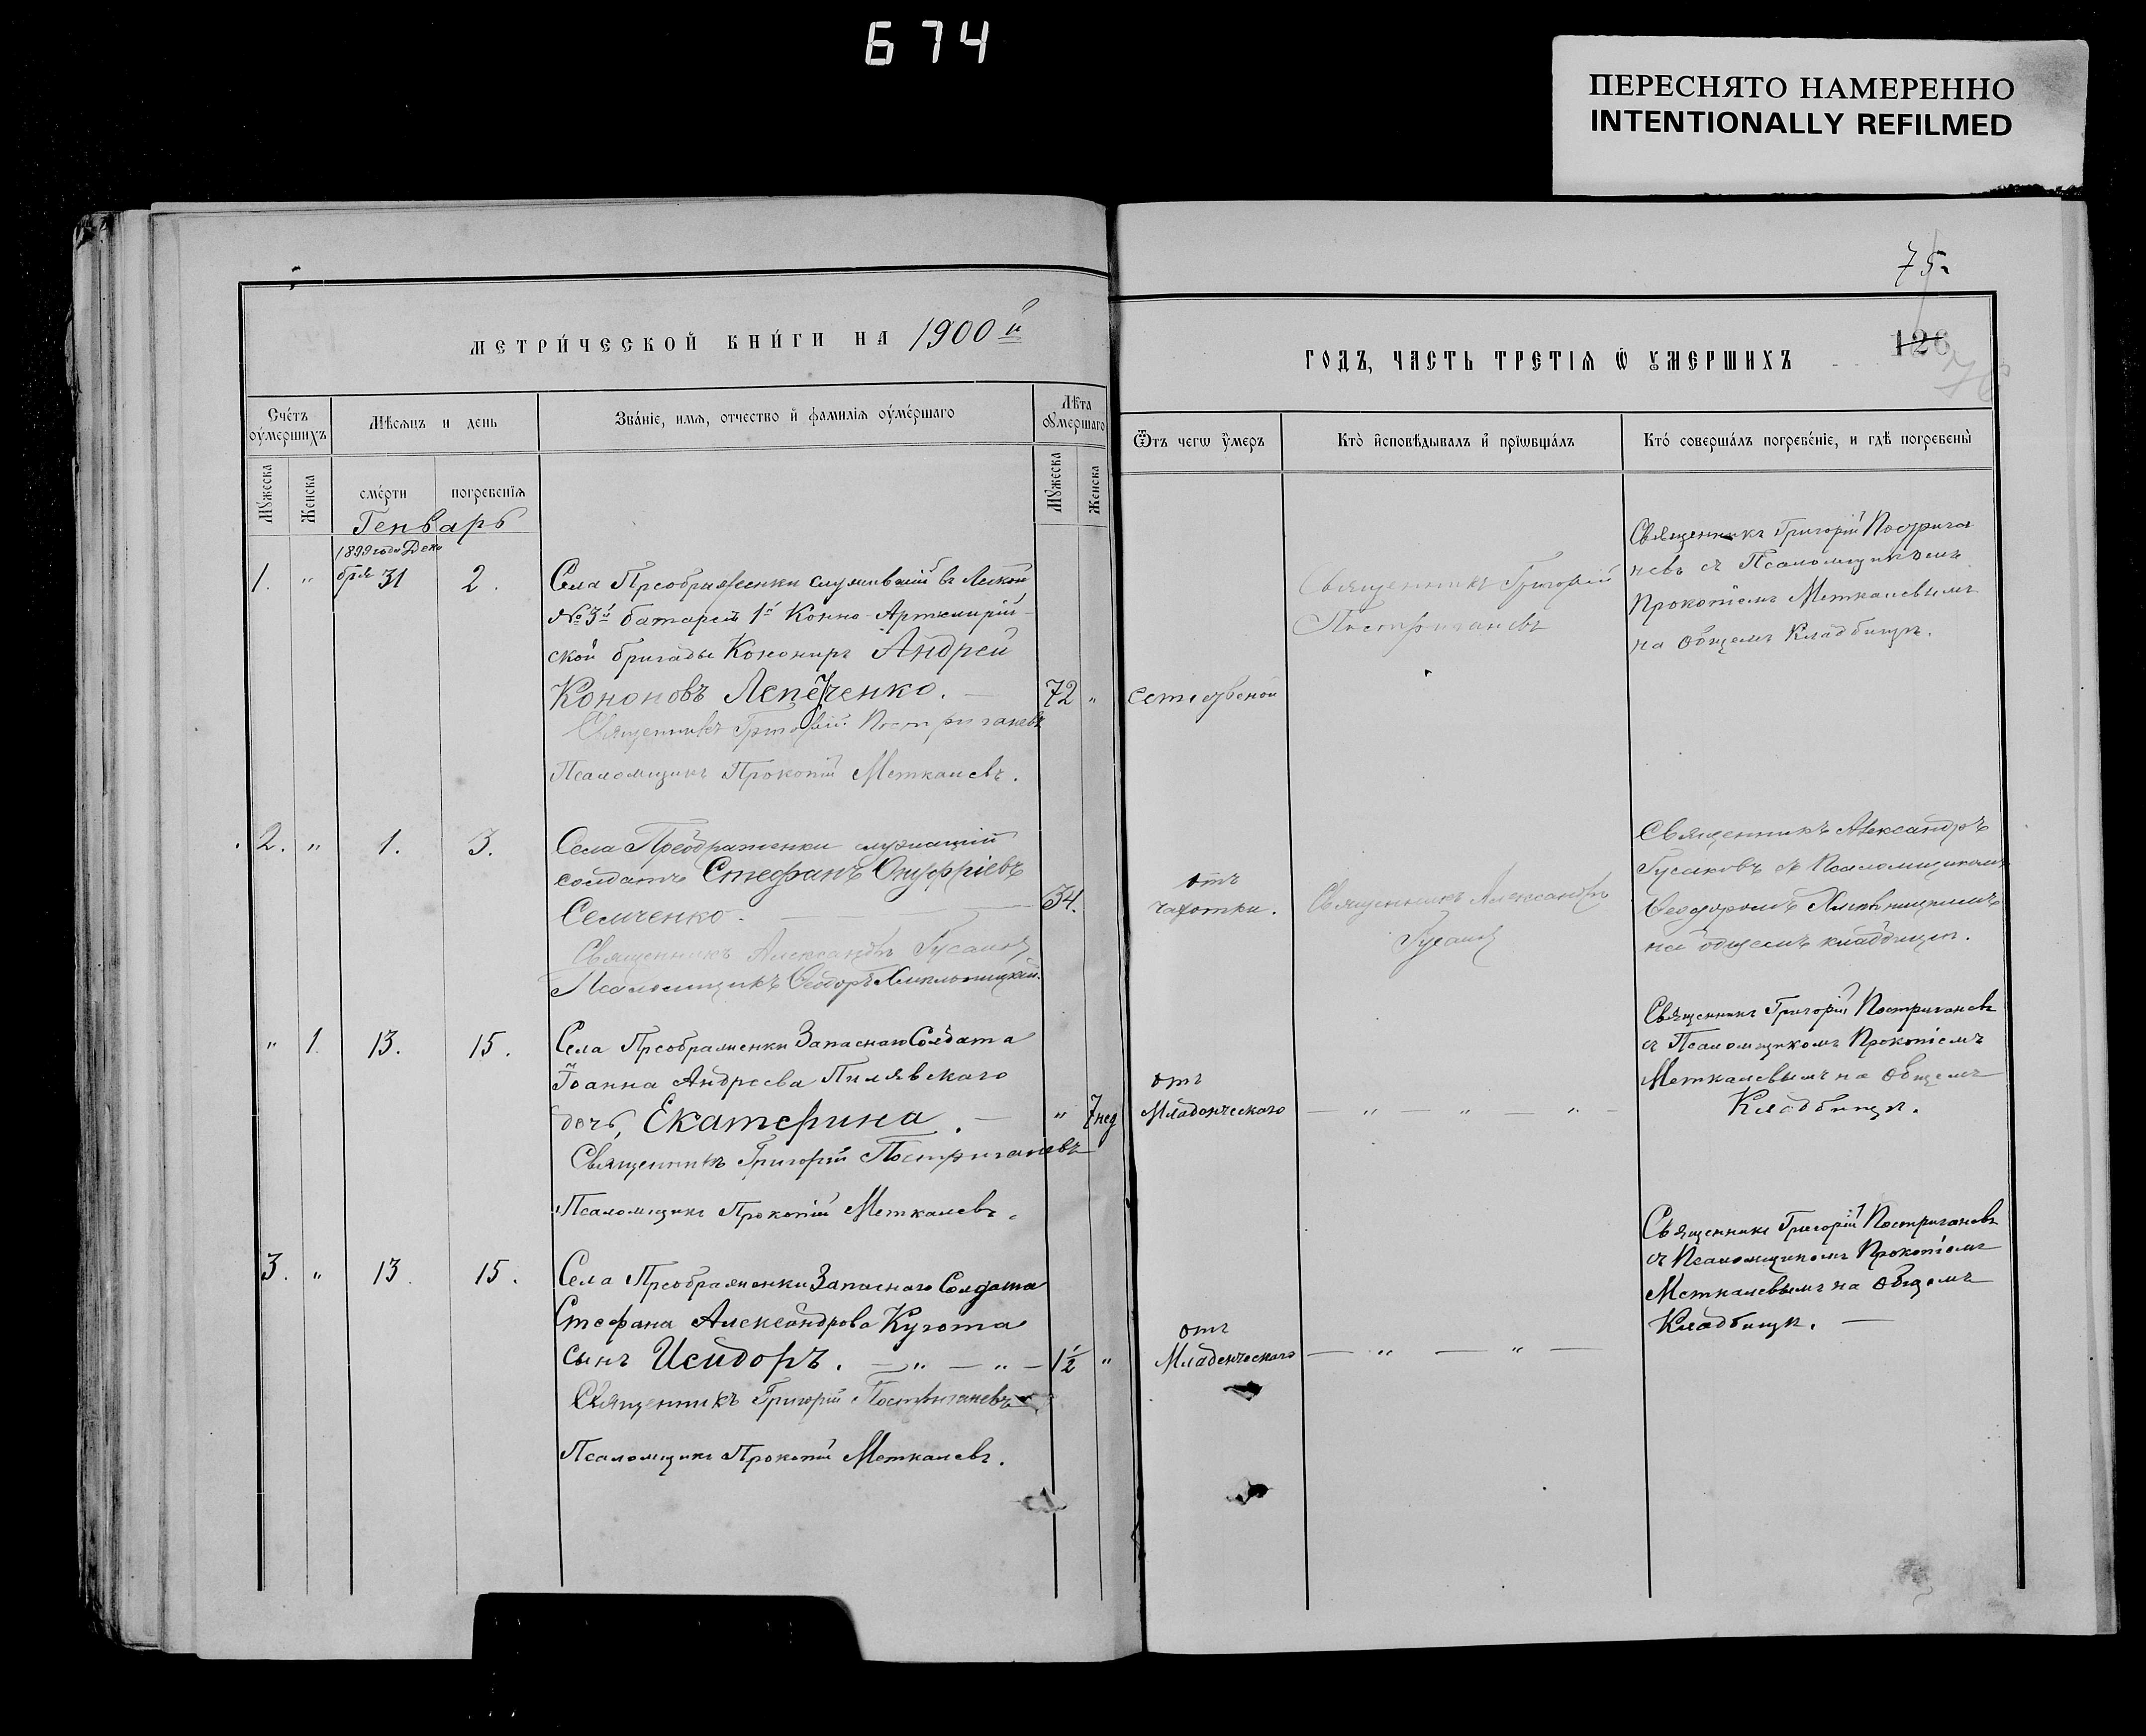 674
ПЕРЕСНЯТО НАМЕРЕННО
INTENTIONALLY REFILMED
75.
МЕТРИ́ЧЕСКОЙ КНИ́ГИ НА 1900й
ГОДЪ, ЧАСТЬ ТРЕТІѦ Ѿ ᲂУМЕРШИХЪ
126
76
Сче́тъ ᲂу҆ме́ршихъ
Мѣ́сяцъ и день
Зва́нїе, имѧ, отчество и҆ фамилїѧ ᲂу҆ме́ршаго
Лѣта ᲂу҆ме́ршаго
Ѿ чегѡ ᲂу҆меръ
Кто̀ и҆сповѣ́дывалъ и҆ прїѡбща́лъ
Кто́ соверша́лъ погребе́нїе, и гдѣ̀ погребены̀
Мꙋжеска
Женска
сме́рти
погребенїѧ
Мꙋжеска
Женска
Генварь
1. " 1899 года Дека
бря 31 2.
Села Преображенки служивший в Легкой
№ 3й батареи 1й Конно-Артилирій-
ской бригады Кононир Андрей
Кононовъ Лепеченко. 72 "
Священникъ Григорій Постригачевъ
Псаломщикъ Прокопій Меткалевъ.
Естественой
Священникъ Григорій
Постригачевъ
Священникъ Григорій Постригa
чевъ съ Псаломщикомъ
Прокопіемъ Меткалевымъ
на общемъ Кладбищѣ.
2. " 1. 3.
Села Преображенки служащій
солдатъ Стефанъ Онуфріевъ
Семченко. 34.
Священникъ Александръ Гусаковъ
Псаломщикъ Ѳеодоръ Хмельницкій.
отъ
чахотки.
Священникъ Александръ
Гусаковъ
Священникъ Александръ
Гусаковъ съ Псаломщикомъ
Ѳеодоромъ Хмельницкимъ
на общемъ кладбищѣ.
" 1. 13. 15.
Села Преображенки Запаснаго Солдата
Іоанна Андреева Пилявскаго
дочь, Екатерина. " 7 нед
Священникъ Григорій Постригачевъ
Псаломщикъ Прокопій Меткалевъ.
отъ
Младенческаго — " — " — " —
Священникъ Григорій Постригачевъ
съ Псаломщикомъ Прокопіемъ
Меткалевымъ на общемъ
Кладбищѣ.
3. " 13. 15.
Села Преображенки Запаснаго Солдата
Стефана Александрова Кугота
сынъ Исидоръ. — " — " — 1½ "
Священникъ Григорій Постригачевъ
Псаломщикъ Прокопій Меткалевъ.
отъ
Младенческаго — " — " —
Священникъ Григорій Постригачевъ
съ Псаломщикомъ Прокопіемъ
Меткалевымъ на Общемъ
Кладбищѣ. —